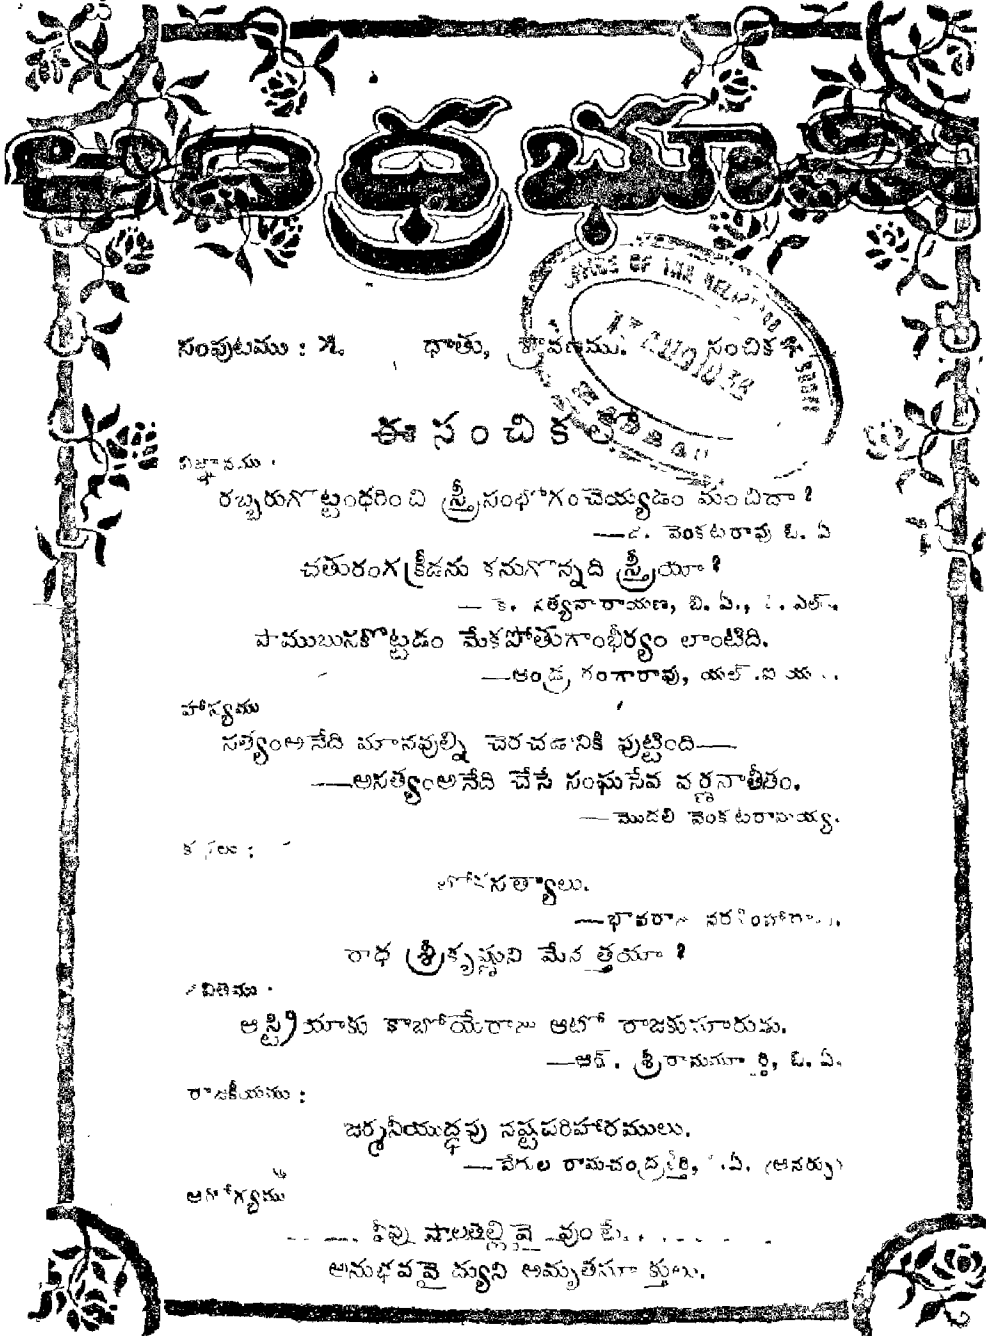 సంపుటము : ౫. ధాతు, శ్రావణము. సంచిక
ఈ సంచికలో
విజ్ఞానము :
రబ్బరుగొట్టంధరించి స్త్రీసంభోగంచెయ్యడం మంచిదా ?
వెంకటరావు ఓ. ఏ
చతురంగక్రీడను కనుగొన్నది స్త్రీయా ?
— కె. సత్యనారాయణ, బి. ఏ., ఎల్.
పాముబుసకొట్టడం మేకపోతుగాంభీర్యం లాంటిది.
—ఆండ్ర గంగారావు, యల్
హాస్యము
సత్యంఅనేది మానవుల్ని చెరచడానికి పుట్టింది——
——అసత్యంఅనేది చేసే సంఘసేవ వర్ణనాతీతం.
—మొదలి వెంకటరామయ్య.
కథలు :
లోకసత్యాలు.
—భావరాజు నరసింహారావు.
రాధ శ్రీకృష్ణుని మేనత్తయా ?
కవితము :
ఆస్ట్రియాకు కాబోయేరాజు ఆటో రాజకుమారుడు.
—ఆర్. శ్రీరామమూర్తి, ఓ. ఏ.
రాజకీయము :
జర్మనీయుద్ధపు నష్టపరిహారములు.
—వేగుల రామచంద్రకీర్తి, .ఏ. (ఆనర్సు)
ఆరోగ్యము
అనుభవవైద్యుని అమృతసూక్తులు.